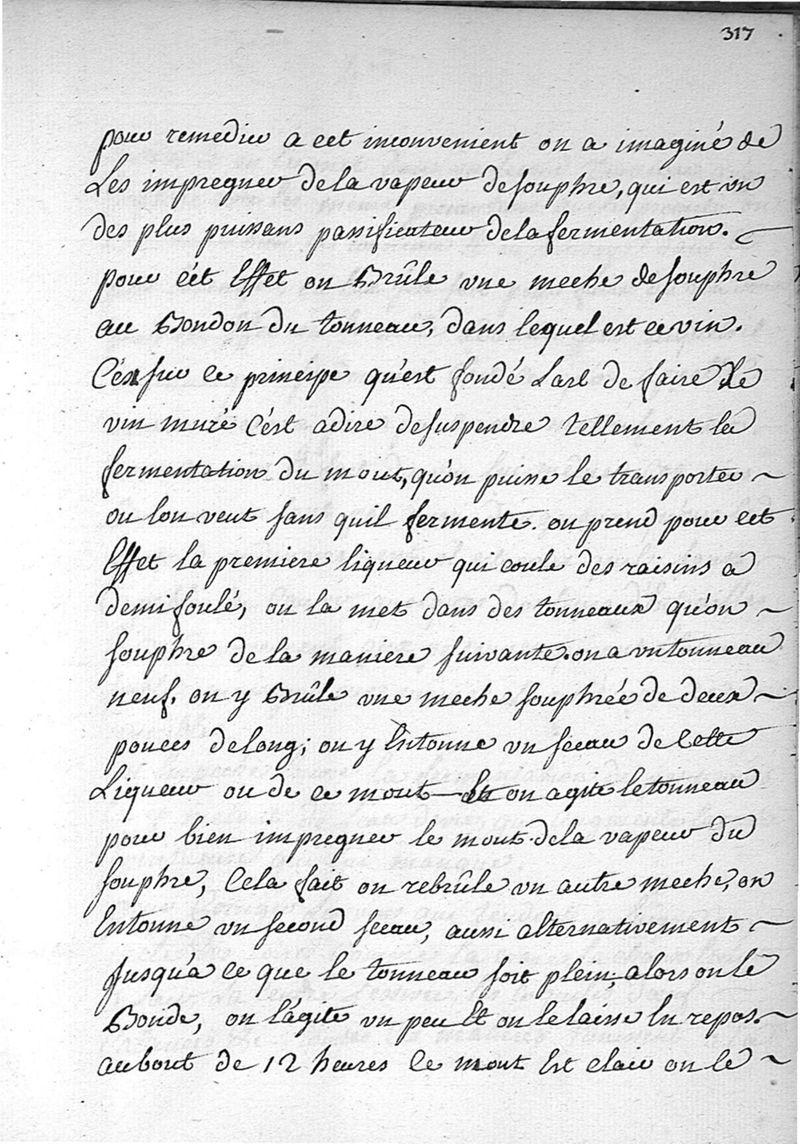 317
pour remedier a cet inconvenient on a imaginé de
Les impregner de la vapeur de souphre, qui est un
des plus puissans passificateur de la fermentation.
pour cét Effet on Brûle vne meche de souphre
au Bondon du tonneau, dans lequel est ce vin.
C'ést sur ce principe qu'est fondé L'art de faire Le
vin muré C'ést adire de suspendre tellement la
fermentation du mout, qu'on puisse le transporter
ou lon veut sans quil fermente. on prend pour cet
Effet la premiere liqueur qui coule des raisins a
demi foulé, on la met dans des tonneaux qu'on
souphre de la maniere suivante. on a vn tonneau
neuf. on y Brûle vne meche souphrée de deux
pouces de long; on y Entonne vn seau de Cette
Liqueur ou de ce mout Et on agite le tonneau
pour bien impregner le mout de la vapeur du
souphre, Cela fait on rebrûle vn autre meche, on
Entonne vn second seau, aussi alternativement
Jusqu'a ce que le tonneau soit plein, alors on le
Bonde, on l'ágite vn peu Et on le laisse En repos.
au bout de 12 heures Le mout Est clair on le